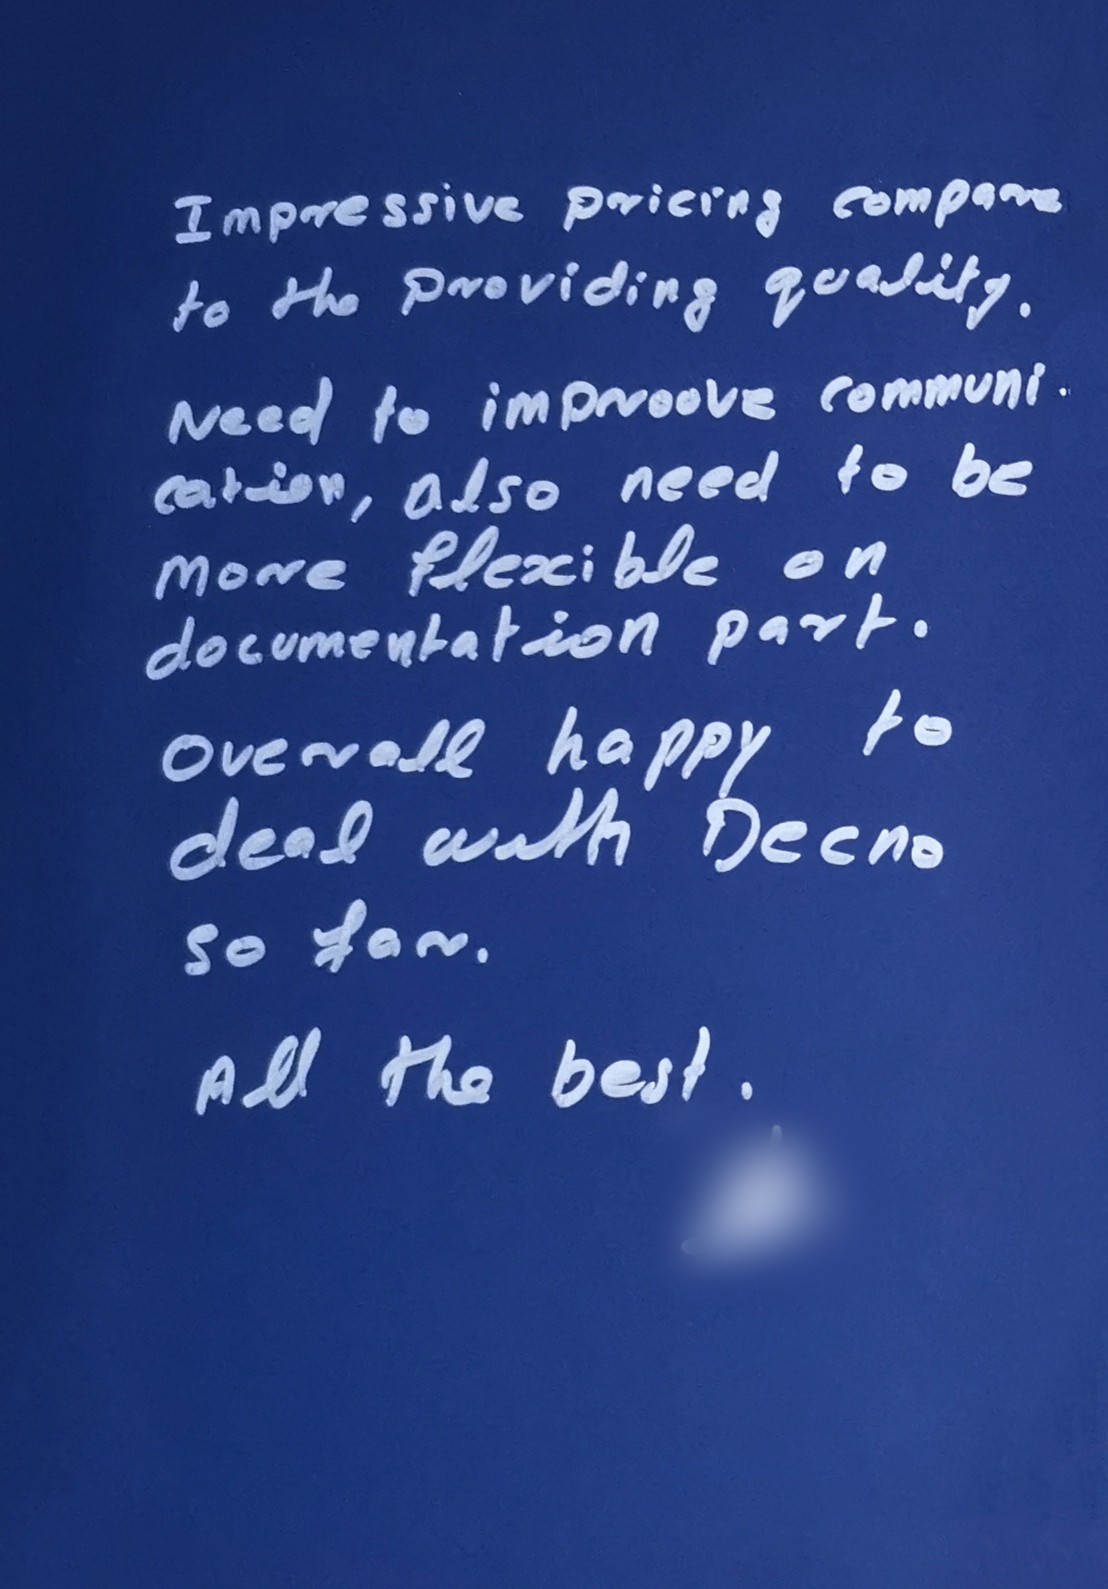 Impressive pricing compare
to the providing quality.
Need to improove communi.
cation, also need to be
more flexible on
documentation part.
Overall happy to
deal with Decno
so far.
All the best.